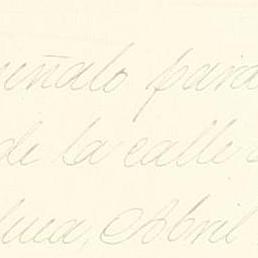 señalo para
de la calle
Abril